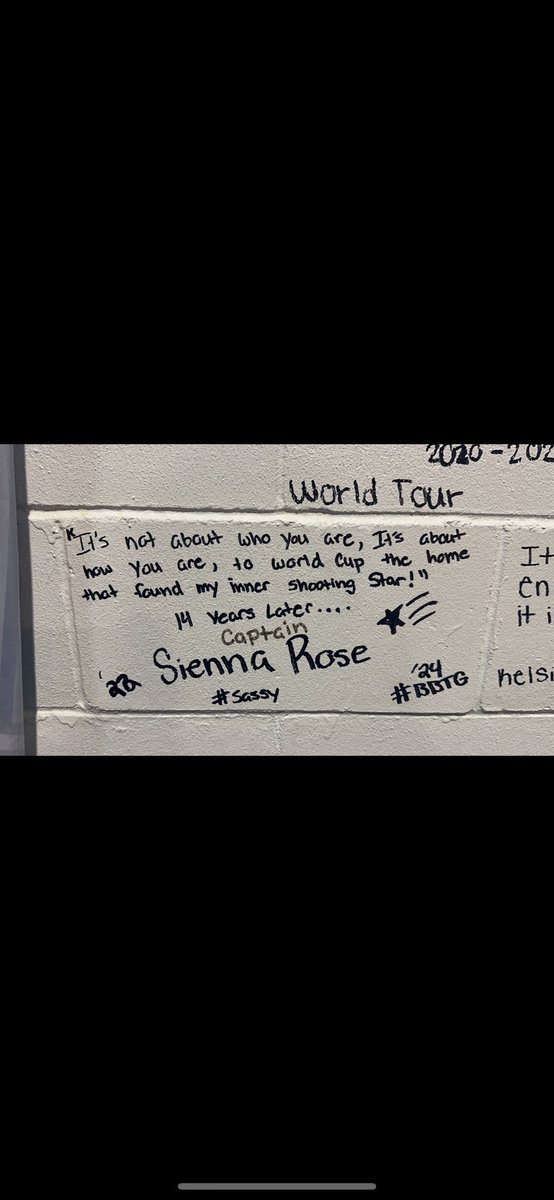 2020 - 202
World Tour
"It's not about who you are, It's about
how you are, to world Cup the home
that found my inner shooting Star!"
14 Years Later....
Captain
Sienna Rose
'22
'24
#Sassy
#BBTG
It
en
it i
helsi